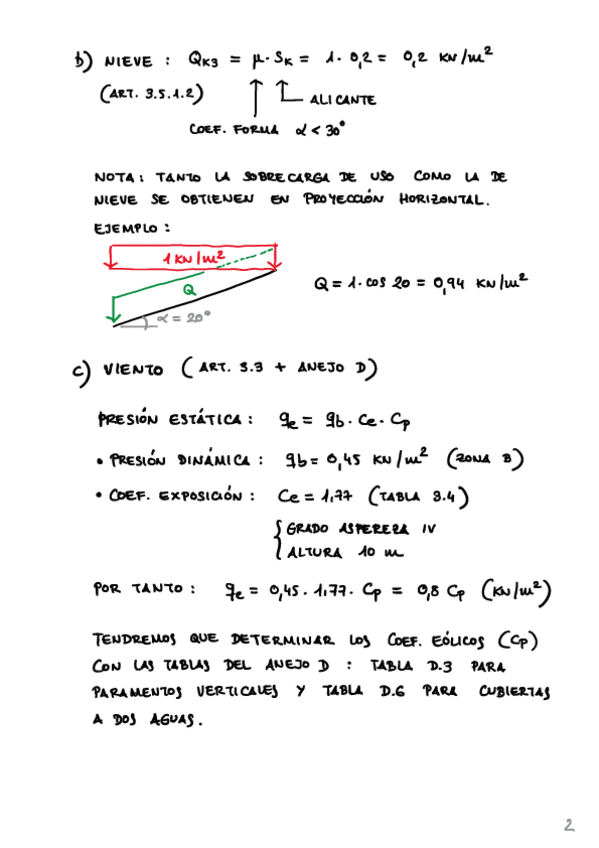 b) NIEVE : QK3 = μ · SK = 1 · 0,2 = 0,2 KN/m²
(ART. 3.5.1.2)
ALICANTE
COEF. FORMA α < 30°
NOTA: TANTO LA SOBRECARGA DE USO COMO LA DE
NIEVE SE OBTIENEN EN PROYECCIÓN HORIZONTAL.
EJEMPLO:
1 KN/m²
Q
α = 20°
Q = 1 · cos 20 = 0,94 KN/m²
c) VIENTO (ART. 3.3 + ANEJO D)
PRESIÓN ESTÁTICA : qe = qb · Ce · Cp
• PRESIÓN DINÁMICA : qb = 0,45 KN/m² (ZONA B)
• COEF. EXPOSICIÓN : Ce = 1,77 (TABLA 3.4)
{ GRADO ASPEREZA IV
ALTURA 10 m
POR TANTO : qe = 0,45 · 1,77 · Cp = 0,8 Cp (KN/m²)
TENDREMOS QUE DETERMINAR LOS COEF. EÓLICOS (Cp)
CON LAS TABLAS DEL ANEJO D : TABLA D.3 PARA
PARAMENTOS VERTICALES Y TABLA D.6 PARA CUBIERTAS
A DOS AGUAS.
2